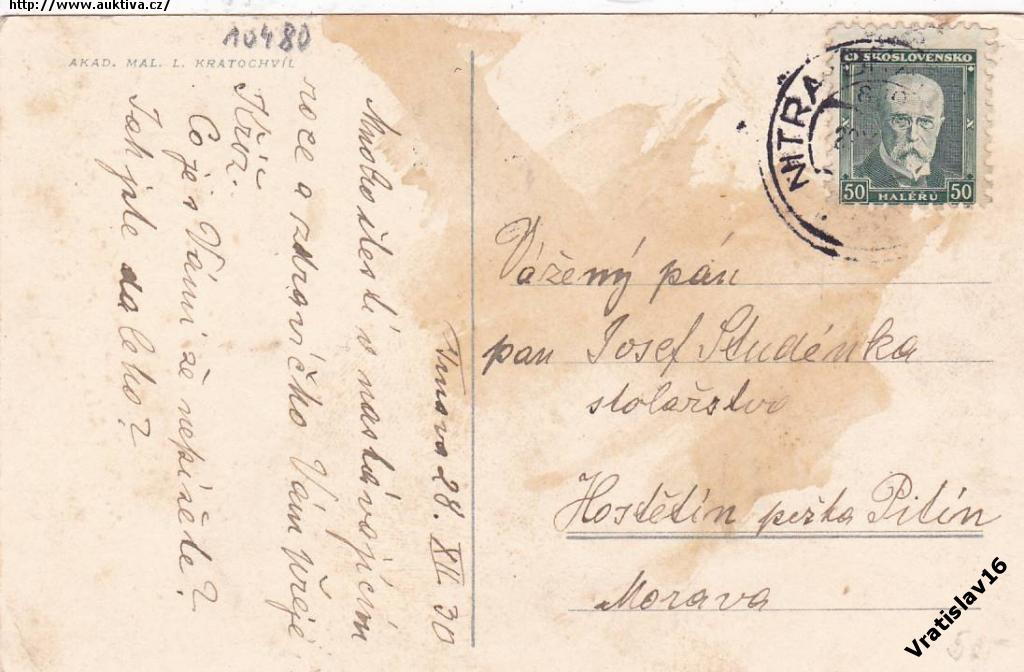 http://www.auktiva.cz/
10480
AKAD. MAL. L. KRATOCHVÍL
28. XII. 30
Mnoho štestí v nastávajícím
roce a zdravíčko Vám přeje
Kříž.
Co je s Vámi že nepíšete?
Jak jste daleko?
ČESKOSLOVENSKO
50 HALÉŘŮ 50
NITRA
Vážený pán
pan Josef Studénka
stolařstvo
Hostětín pošta Pitín
Morava
Vratislav16